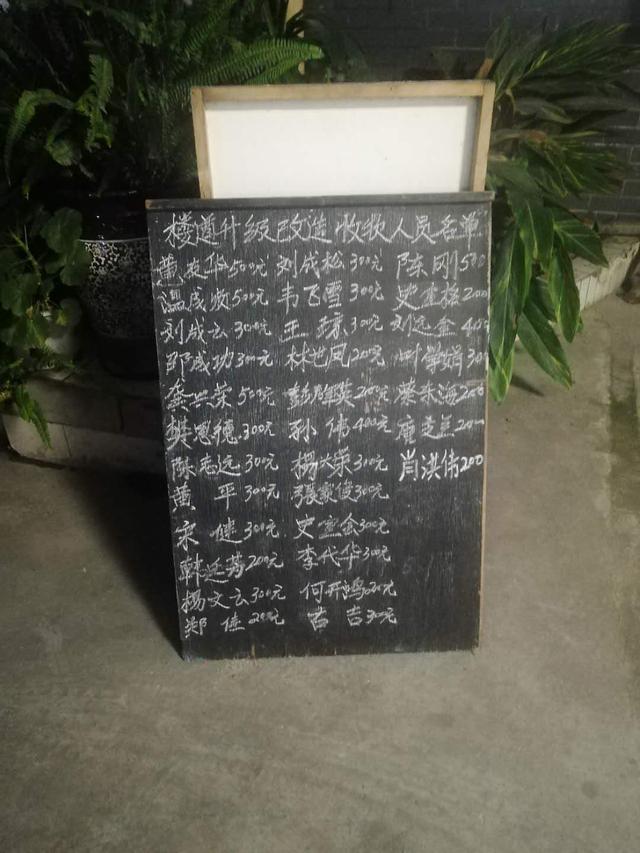 楼道升级改造收款人员名单
黄发华500元 刘成松300元 陈刚500
温成牧500元 韦飞雪300元 史宝松200元
刘成云300元 王琼300元 刘远金400
邵成功300元 林世凤200元 叶学娟300
龚兴荣500元 200元 蔡朱海200
樊恩德300元 孙伟400元 唐芝兰200元
陈志远300元 杨兴荣300元 肖洪伟200
黄平300元 張家俊300元
宋健300元 史宝金300元
韩廷芬200元 李代华300元
杨文云300元 何开鸿200元
郑佳200元 吉吉300元